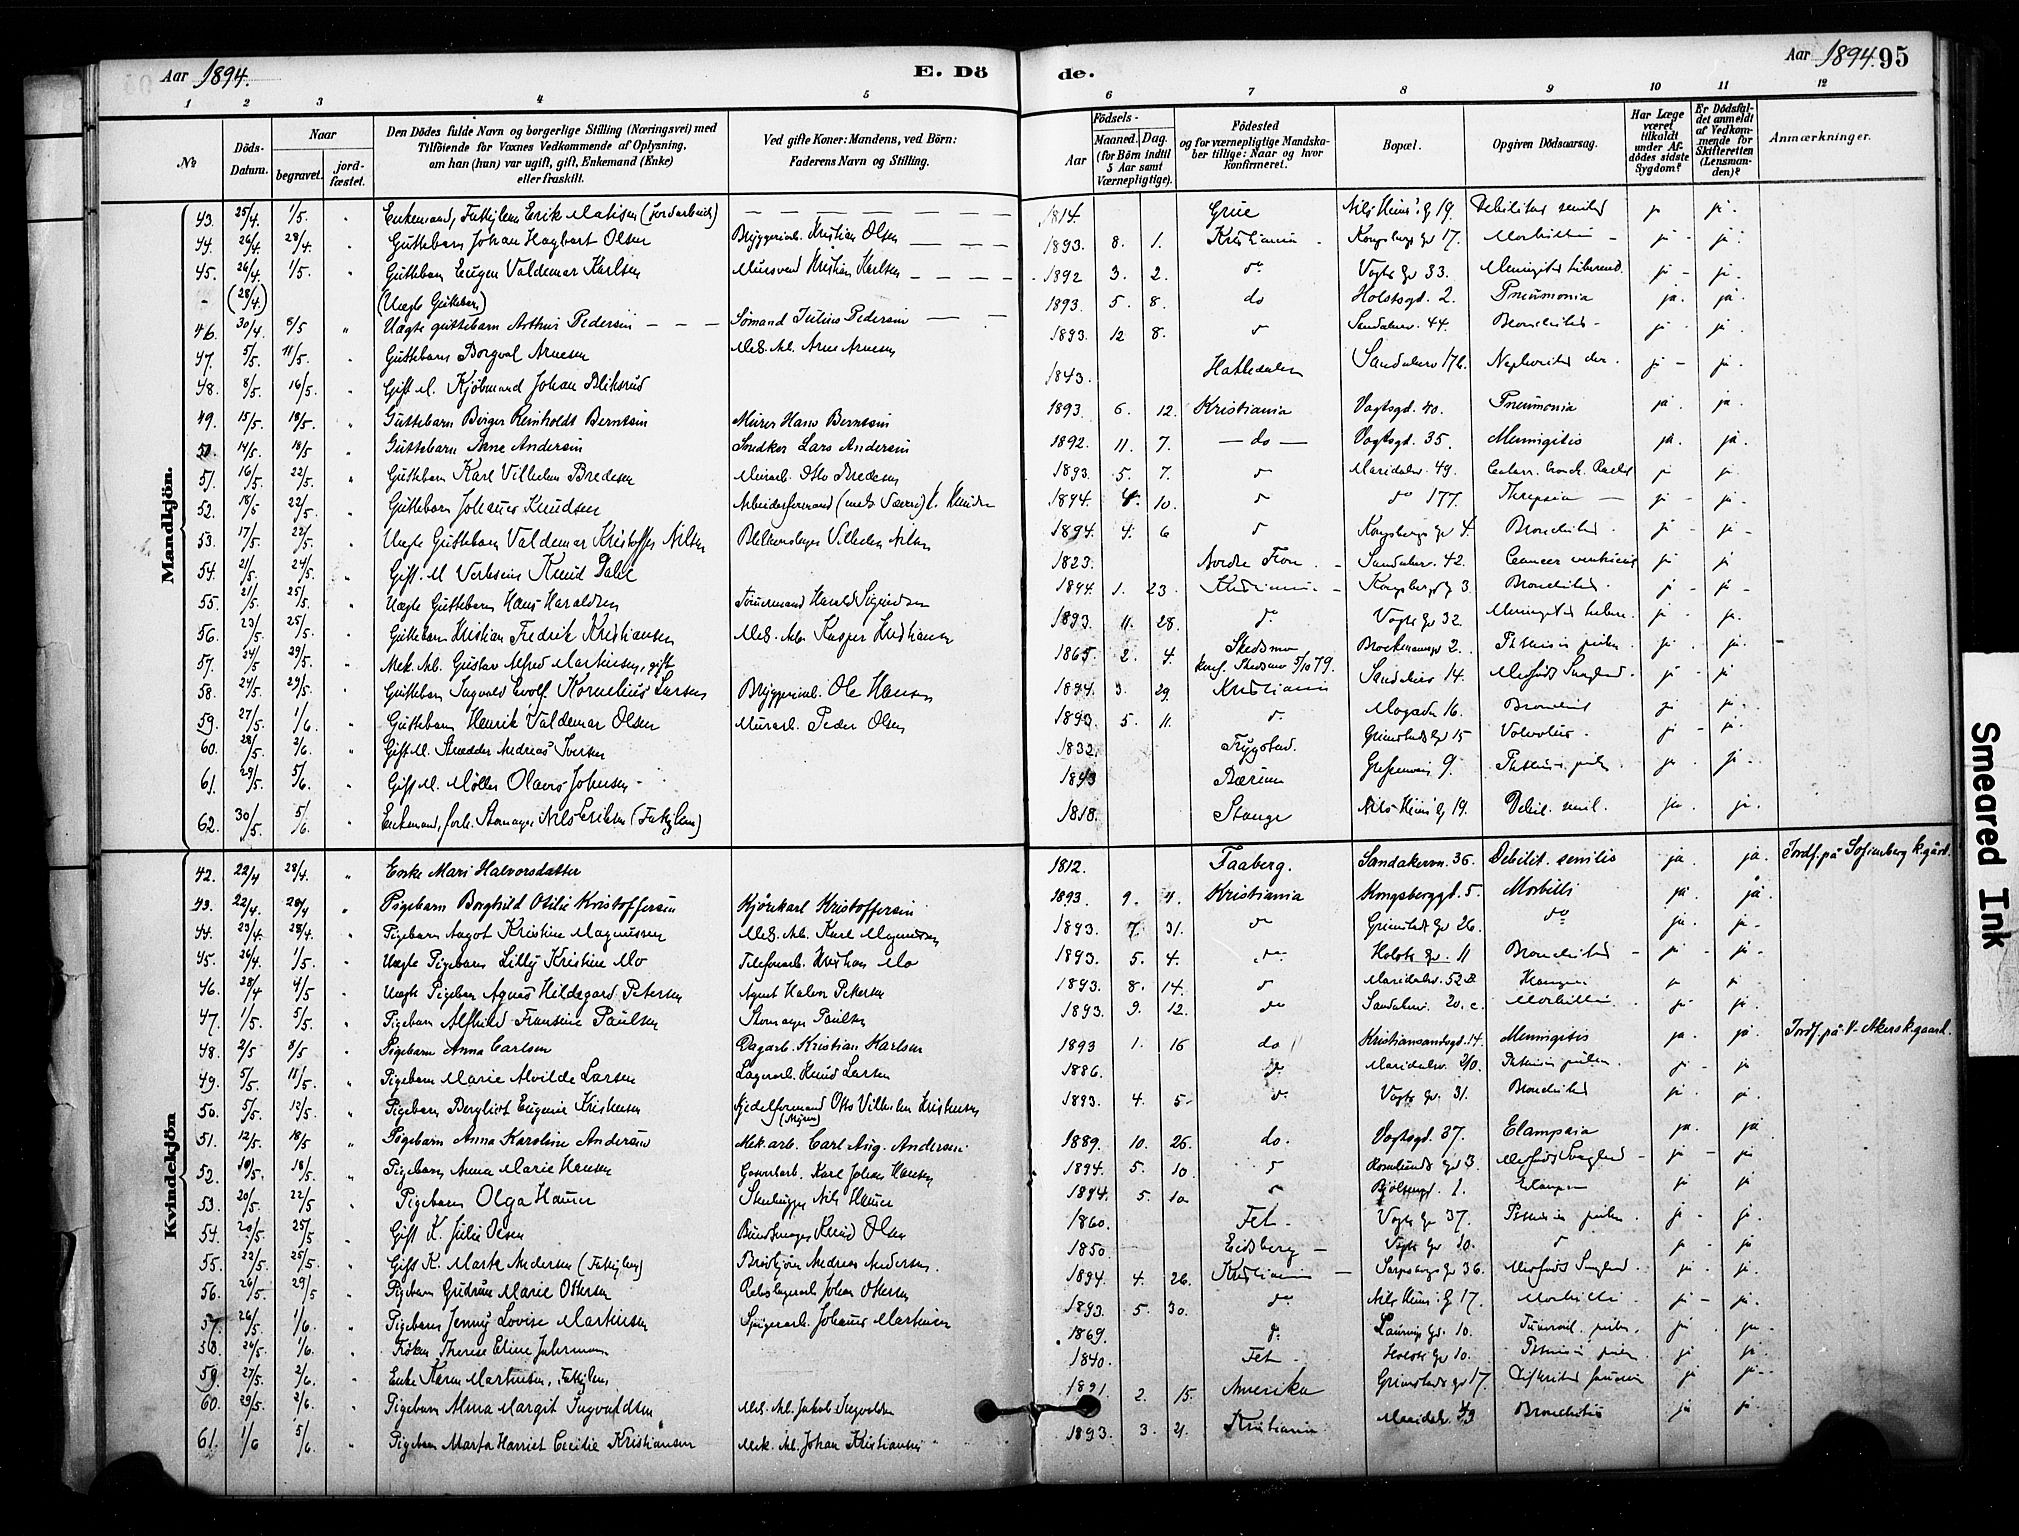 Aar 1894.
E. Dö
de.
Aar 1894. 95
1 2 3 4 5 6 7 8 9 10 11 12
No
Döds-Datum.
Naar
begravet.
jord-fæstet.
Den Dödes fulde Navn og borgerlige Stilling (Næringsvei) med
Tilföiende for Voxnes Vedkommende af Oplysning,
om han (hun) var ugift, gift, Enkemand (Enke)
eller fraskilt.
Ved gifte Koner: Mandens, ved Börn:
Faderens Navn og Stilling.
Födsels-
Aar
Maaned. Dag.
(for Börn indtil
5 Aar samt
Værnepligtige).
Födested
og for værnepligtige Mandska-
ber tillige: Naar og hvor
konfirmeret.
Bopæl.
Opgiven Dödsaarsag.
Har Læge
været
tilkaldt
under Af-
dödes sidste
Sygdom?
Er Dödsfal-
det anmeldt
af Vedkom-
mende for
Skifteretten
(Lensman-
den)?
Anmærkninger.
Mandkjön.
43. 25/4. 1/5. " Enkemand, Fattiglem Erik Matisen (Jordarbeid) 1814. Grue Nils Huus' g 19. Debilitas senilis ja ja.
44. 26/4. 28/4. " Guttebarn Johan Hagbart Olsen Bryggeriarb. Kristian Olsen 1893. 8. 1. Kristiania Kongsbergs gd 17. Morbilli ja ja.
45. 26/4. 1/5. " Guttebarn Eugen Valdemar Karlsen Mursvend Kristian Karlsen 1892 3. 2. do Vogts gd 33. Meningitis tuberculosa ja ja.
- (28/4.) (Uægte Guttebarn) 1893. 5. 8. do Holstsgd. 2. Pneumonia ja. ja.
46. 30/4. 8/5. " Uægte guttebarn Arthur Pedersen Sømand Julius Pedersen 1893. 12 8. do Sandakerv. 44. Bronchitis ja ja.
47. 5/5. 11/5. " Guttebarn Borgval Arnesen Mek. Arb. Arne Arnesen
48. 8/5. 16/5. " Gift M. Kjøbmand Johan Bliksrud 1843. Hattedalen Sandakerv 17b. Nephritis ja ja.
49. 15/5. 18/5. " Guttebarn Berger Reinholdt Berntsen Murer Hans Berntsen 1893. 6. 12. Kristiania Vogtsgd. 40. Pneumonia ja. ja.
50. 14/5. 18/5. " Guttebarn Arne Andersen Snedker Lars Andersen 1892. 11. 7. do Vogtsgd. 35. Meningitis ja. ja.
51. 16/5. 22/5. " Guttebarn Karl Vilhelm Bredesen Murarb. Otto Bredesen 1893. 5. 7. do Maridalsv. 49. ja ja.
52. 18/5 22/5. " Guttebarn Johannes Knudsen Arbeidsformand K. Knudsen 1894. 4. 10. do do 177. Threpsia ja ja.
53. 17/5 22/5. " Uægte Guttebarn Valdemar Kristoffer Nilsen Blikkenslager Vilhelm Nilsen 1894. 4. 6 do Kongsbergs gd 4. Bronchitis ja ja
54. 21/5. 24/5. " Gift M. Knud Dahl 1823. Nordre Fron Sandakerv. 42. Cancer ventriculi ja ja
55. 21/5. 25/5. " Uægte Guttebarn Hans Haraldsen Tømmermand Harald Sigurdsen 1894. 1. 23. Kristiania Kongsbergsg 3 Bronchitis. ja ja
56. 23/5 25/5. " Guttebarn Kristian Fredrik Kristiansen Mek. Arb. Kasper Kristiansen 1893. 11. 28. do Vogts gd 32. Meningitis tuberc. ja ja.
57. 24/5 29/5. " Mek. Arb. Gustav Alfred Martinsen, gift 1865. 2. 4. Skedsmo konf. Skedsmo 5/10 79. 2. Phthisis pulm. ja ja
58. 24/5. 29/5. " Guttebarn Ingvald Evolf Kornelius Larsen Bryggeriarb. Ole Hansen 1894. 3. 29. Kristiania Sandakerv 14. Medfødt Svaghed ja ja
59. 27/5. 1/6. " Guttebarn Henrik Valdemar Olsen Murarb. Peder Olsen 1893. 5. 11. do 16. Bronchitis ja ja
60. 28/5. 2/6. " Gift M. Skrædder Andreas Iversen 1832. Trygstad. Grimstads gd 15 Volvolus. ja ja
61. 29/5. 5/6. " Gift M. Møller Olaves Johansen 1843 Bærum Grefsenvei 9. Phthisis pulm ja ja
62. 30/5. 5/6. " Enkemand, forh. Skomager Nils Eriksen (Fattiglem) 1818. Stange Nils Huus' g 19. Debil. senil. ja ja.
Kvindekjön
42. 22/4 28/4. " Enke Mari Halvorsdatter 1812. Faaberg. Sandakervn. 36. Debilit. senilis ja ja. Jordf. på Sofienberg k.gård.
43. 22/4. 28/4 " Pigebarn Borghild Otilie Kristoffersen Kjørekarl Kristoffersen 1893. 9. 4. Kristiania Kongsberggd. 5. Morbilli ja. ja.
44. 23/4. 28/4. " Pigebarn Aagot Kristine Magnussen Mek. Arb. Karl Magnussen 1893. 7. 31. do Grimstads gd 26. do ja. ja
45. 26/4. 1/5. " Uægte Pigebarn Lilly Kristine Mo Telefonarb. Kristian Mo 1893. 5. 4. do Holsts gd. 11 Bronchitis ja ja
46. 28/4 4/5. " Uægte Pigebarn Agnes Hildegard Petersen Agent Halvor Petersen 1893. 8. 14. do Maridalsv. 52 B ja ja
47. 1/5. 5/5. " Pigebarn Alfhild Fransine Paulsen Skomager Paulsen 1893. 9. 12. do Sandakerv. 20.c. Morbilli ja ja.
48. 2/5 8/5. " Pigebarn Anna Carlsen Dagarb. Kristian Karlsen 1893 1. 16 do Kristiansandsgd. 14. Meningitis ja. ja. Jordf. på V-Akers k.gaard.
49. 5/5. 11/5. " Pigebarn Marie Alvilde Larsen Lagerarb. Knud Larsen 1886. do Maridalsv. 210. Phthisis pulm ja ja
50. 5/5. 12/5. " Pigebarn Bergliot Eugenie Kristensen Kjedelformand Otto Vilhelm Kristensen (Myren) 1893. 4. 5. do Vogts gd. 31. Bronchitis ja ja
51. 12/5. 18/5 " Pigebarn Anna Karoline Andersen Mek.arb. Carl Aug. Andersen 1889. 10. 26. do. Vogtsgd. 37. Eclampsia ja. ja
52. 10/5. 18/5 " Pigebarn Anna Marie Hansen Gasverkarb. Karl Johan Hansen 1894. 5. 10. do 3. Medfødt Svaghed ja ja
53. 20/5. 22/5 " Pigebarn Olga Hauer Stenhugger Nils Hauer 1894. 5. 10. do Bjølsengd. 1. Eclampsi ja ja
54. 20/5. 25/5 " Gift K. Julie Olsen Bundtmager Knud Olsen 1860. Fet. Vogts gd 37. Phthisis pulm. ja ja
55. 22/5. 25/5. " Gift K. Marte Andersen (Fattiglem) Andreas Andersen. 1850. Eidsberg Vogts gd 10. do ja ja
56. 26/5. 29/5 " Pigebarn Gudrun Marie Ottersen Rebslagerarb Johan Ottersen 1894. 4. 26. Kristiania Sarpsborgs gd 36. Medfødt Svaghed ja ja
57. 26/5. 1/6. " Pigebarn Jenny Lovise Martinsen Spigerarb. Johannes Martinsen 1893. 5. 30. do Nils Huus' g 17. Morbilli ja ja
58. 26/5. 1/6. " Frøken Therese Eline 1869. do Laurvigs gd. 10. pulm. ja ja
59. 27/5. 2/6. " Enke Karen Martinsen, Fattiglem 1840. Fet Holsts gd 10. Phthisis pulm ja ja
60. 29/5. 2/6. " Pigebarn Alma Margit Ingvaldsen Mek. Arb. Jakob Ingvaldsen 1891. 2. 15. Amerika Grimstads gd 17. ja ja
61. 1/6 5/6. " Pigebarn Marta Harriet Cecilie Kristiansen Mek. Arb. Johan Kristiansen 1893. 3. 21. Kristiania Maridalsv. 49 Bronchitis ja ja
Smeared Ink